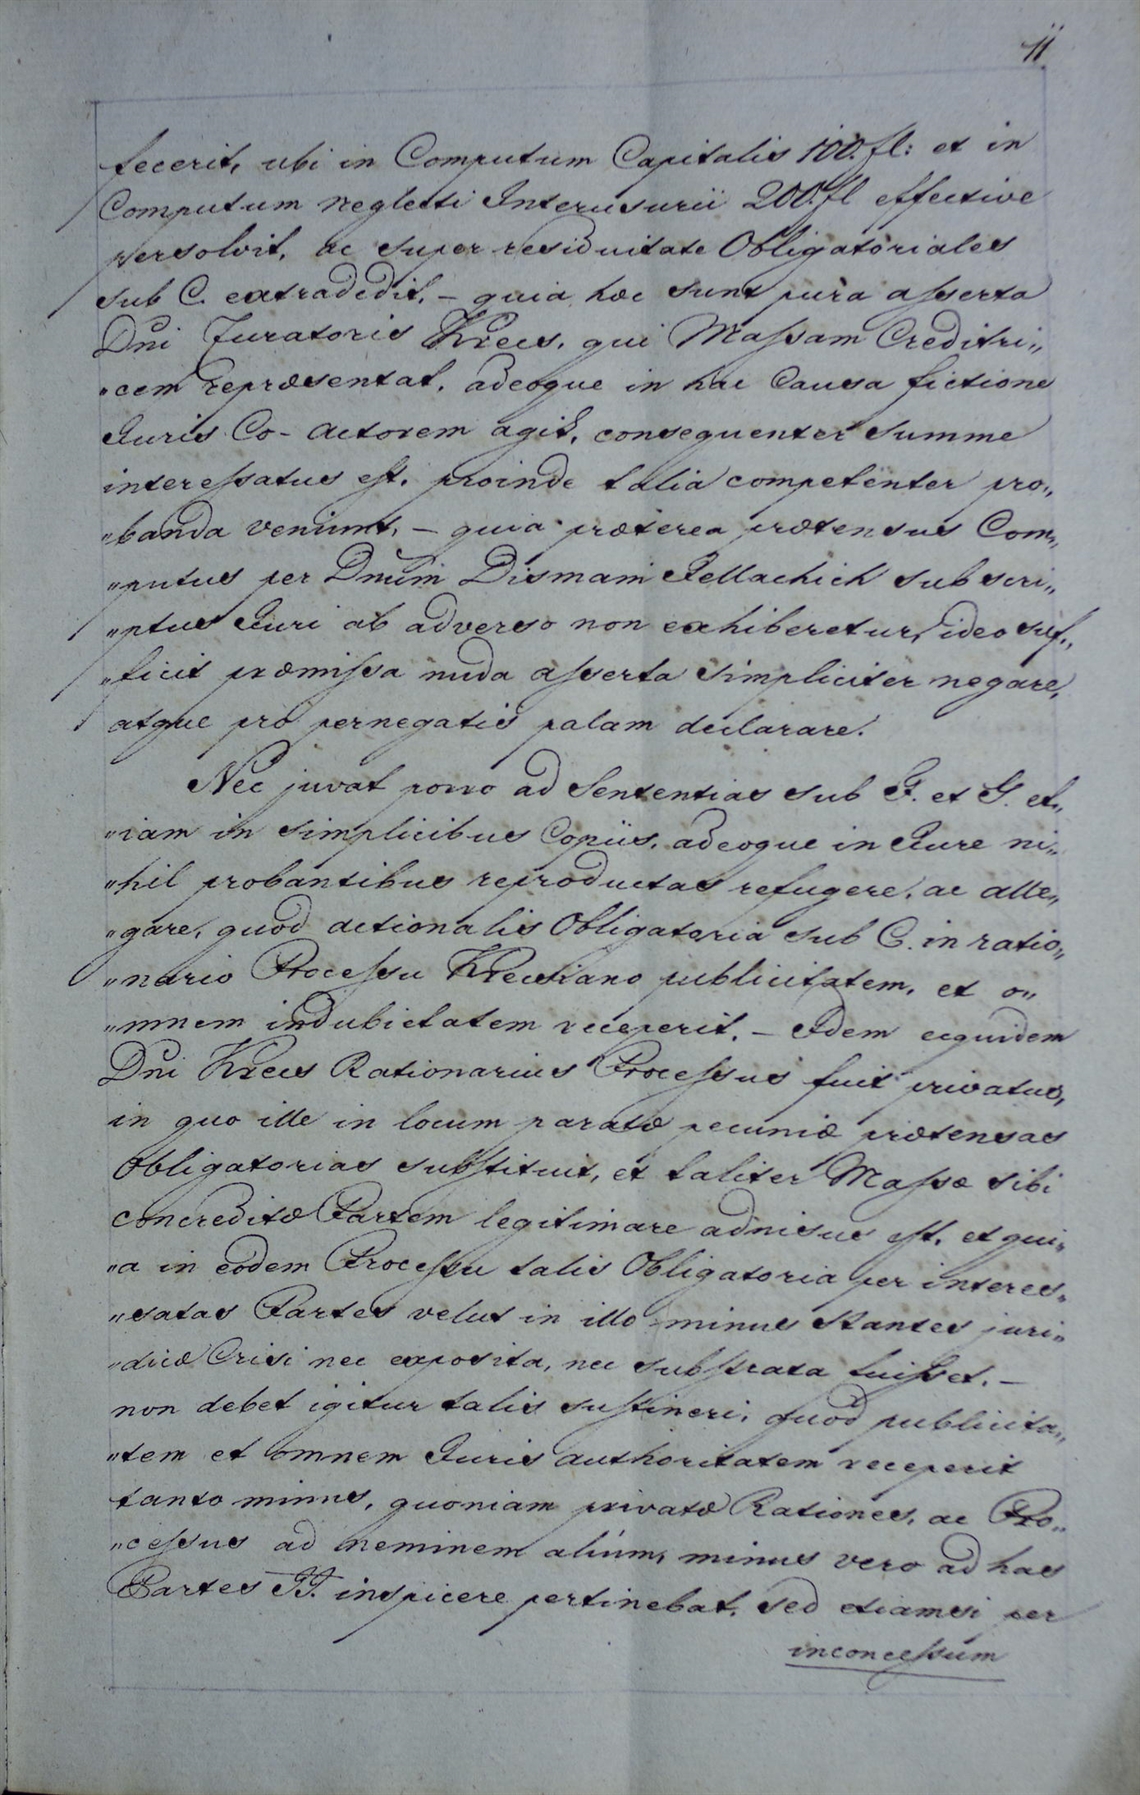 11.
fecerit, ubi in Computum Capitalis 100. fl: et in
Computum neglecti Interusurii 200. fl effective
persolvit, ac super residuitate Obligatoriales
sub C. extradedit, – quia hæc sunt pura asserta
Dni Curatoris Krecs, qui Massam Creditri„
„cem repræsentat, adeoque in hac Causa fictione
Juris Co-Actorem agit, consequenter summe
interessatus est, proinde talia competenter pro„
„banda veniunt, – quia præterea prætensus Com„
„putus per Dnum Dismam Jellachich subscri„
„ptus Juri ab adverso non exhiberetur, ideo suf„
„ficit præmissa nuda asserta simpliciter negare,
atque pro pernegatis palam declarare.
Nec juvat porro ad Sententias sub F. et G. et„
„iam in simplicibus Copiis, adeoque in Jure ni„
„hil probantibus reproductas refugere, ac alle„
„gare, quod actionalis Obligatoria sub C. in ratio„
„nario Processu Krecsiano publicitatem, et o„
„mnem indubietatem receperit. – Idem equidem
Dni Krecs Rationarius Processus fuit privatus,
in quo ille in locum paratæ pecuniæ prætensas
Obligatorias substituit, et taliter Massæ sibi
concreditæ Partem legitimare adnisus est, et qui„
„a in eodem Processu talis Obligatoria per interes„
„satas Partes velut in illo minus Stantes juri„
„dicæ Crisi nec exposita, nec substrata fuisset. –
non debet igitur talis sustineri, quod publicita„
„tem et omnem Juris authoritatem receperit
tanto minus, quoniam privatæ Rationes, ac Pro„
„cessus ad neminem alium, minus vero ad has
Partes II. inspicere pertinebat, sed etiamsi per
inconcessum